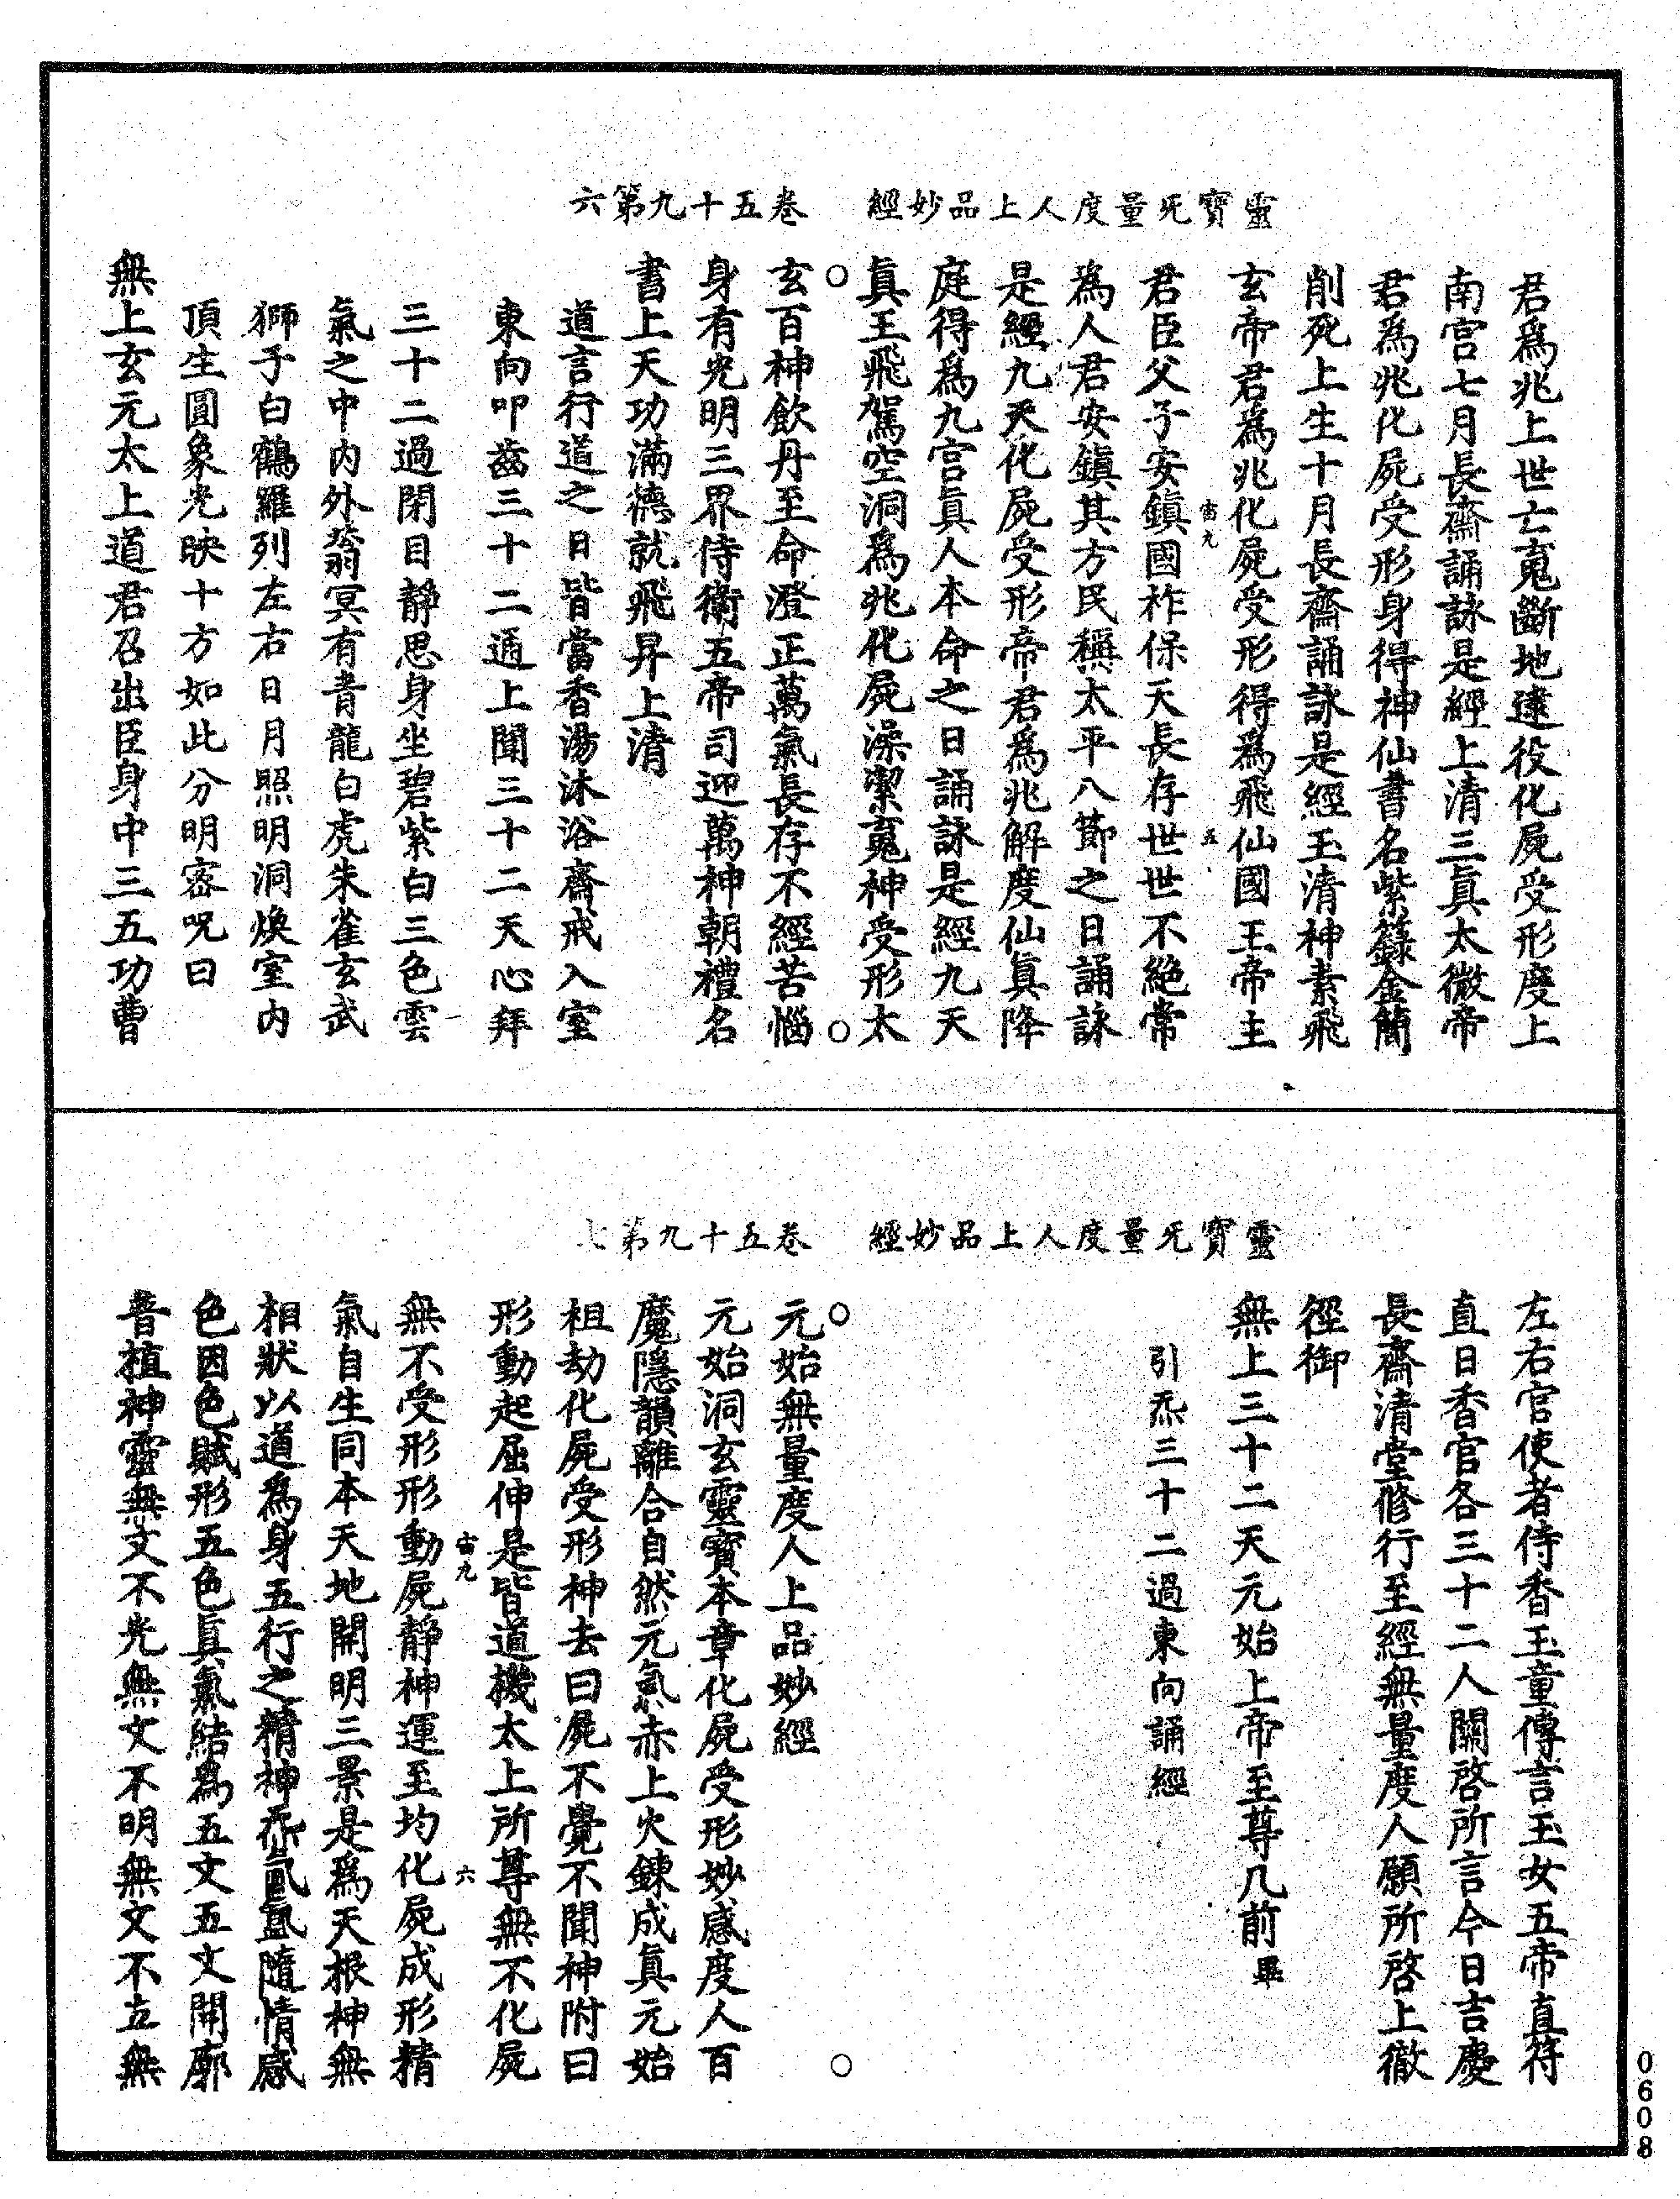 靈寶无量度人上品妙經　卷五十九第六
君爲兆上世亡䰟斷地逮役化屍受形度上
南宮七月長齋誦詠是經上清三眞太微帝
君爲兆化屍受形身得神仙書名紫籙金簡
削死上生十月長齋誦詠是經玉清神素飛
玄帝君爲兆化屍受形得爲飛仙國王帝主
宙九　五
君臣父子安鎮國祚保天長存世世不絕常
爲人君安鎮其方民稱太平八節之日誦詠
是經九天化屍受形帝君爲兆解度仙眞降
庭得爲九宮眞人本命之日誦詠是經九天
眞王飛駕空洞爲兆化屍澡潔䰟神受形太
玄百神飲丹至命澄正萬氣長存不經苦惱
身有光明三界侍衛五帝司迎萬神朝禮名
書上天功滿德就飛昇上清
道言行道之日皆當香湯沐浴齋戒入室
東向叩齒三十二通上聞三十二天心拜
三十二過閉目靜思身坐碧紫白三色雲
氣之中內外蓊冥有青龍白虎朱雀玄武
獅子白鶴羅列左右日月照明洞煥室內
頂生圓象光映十方如此分明密呪曰
無上玄元太上道君召出臣身中三五功曹
靈寶无量度人上品妙經　卷五十九第七
左右官使者侍香玉童傳言玉女五帝直符
直日香官各三十二人關啓所言今日吉慶
長齋清堂修行至經無量度人願所啓上徹
徑御
無上三十二天元始上帝至尊几前畢
引炁三十二過東向誦經
元始無量度人上品妙經
元始洞玄靈寶本章化屍受形妙感度人百
魔隱韻離合自然元氣赤上火鍊成眞元始
祖劫化屍受形神去曰屍不覺不聞神附曰
形動起屈伸是皆道機太上所尊無不化屍
宙九　六
無不受形形動屍靜神運至均化屍成形精
氣自生同本天地開明三景是爲天根神無
相狀以道爲身五行之精神炁氤氳隨情感
色因色賦形五色眞氣結爲五文五文開廓
普植神靈無文不光無文不明無文不立無
0608